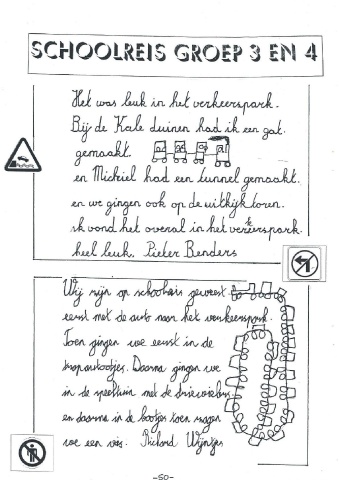 SCHOOLREIS GROEP 3 EN 4
Het was leuk in het verkeerspark.
Bij de Kale duinen had ik een gat
gemaakt.
en Michiel had een tunnel gemaakt.
en we gingen ook op de uitkijktoren.
ik vond het overal in het verkeerspark
heel leuk. Pieter Benders
Wij zijn op schoolreis geweest
eerst met de auto naar het verkeerspark.
Toen gingen we eerst in de
trapautootjes. Daarna gingen we
in de speeltuin met de
en daarna in de bootjes toen zagen
we een vis. Richard Wijntjes
-50-